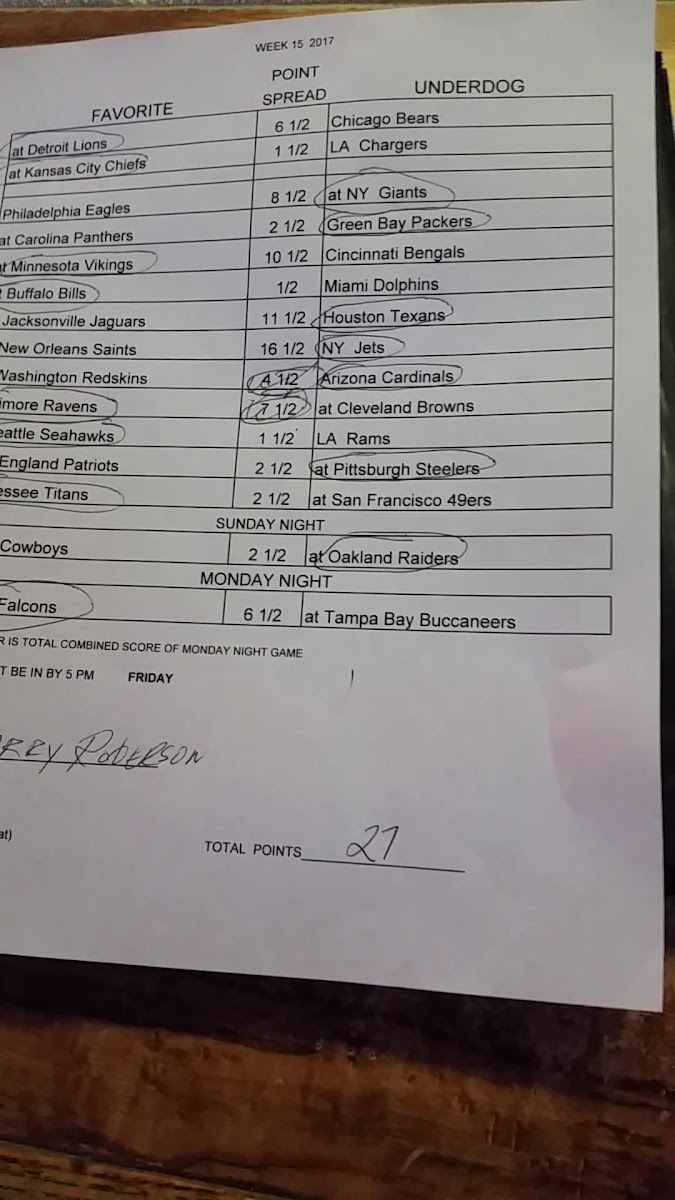 WEEK 15 2017
FAVORITE POINT SPREAD UNDERDOG
at Detroit Lions 6 1/2 Chicago Bears
at Kansas City Chiefs 1 1/2 LA Chargers
Philadelphia Eagles 8 1/2 at NY Giants
at Carolina Panthers 2 1/2 Green Bay Packers
t Minnesota Vikings 10 1/2 Cincinnati Bengals
t Buffalo Bills 1/2 Miami Dolphins
Jacksonville Jaguars 11 1/2 Houston Texans
New Orleans Saints 16 1/2 NY Jets
Washington Redskins 4 1/2 Arizona Cardinals
imore Ravens 7 1/2 at Cleveland Browns
eattle Seahawks 1 1/2 LA Rams
England Patriots 2 1/2 at Pittsburgh Steelers
essee Titans 2 1/2 at San Francisco 49ers
SUNDAY NIGHT
Cowboys 2 1/2 at Oakland Raiders
MONDAY NIGHT
Falcons 6 1/2 at Tampa Bay Buccaneers
R IS TOTAL COMBINED SCORE OF MONDAY NIGHT GAME
T BE IN BY 5 PM FRIDAY
RRY ROBERSON
at)
TOTAL POINTS 27